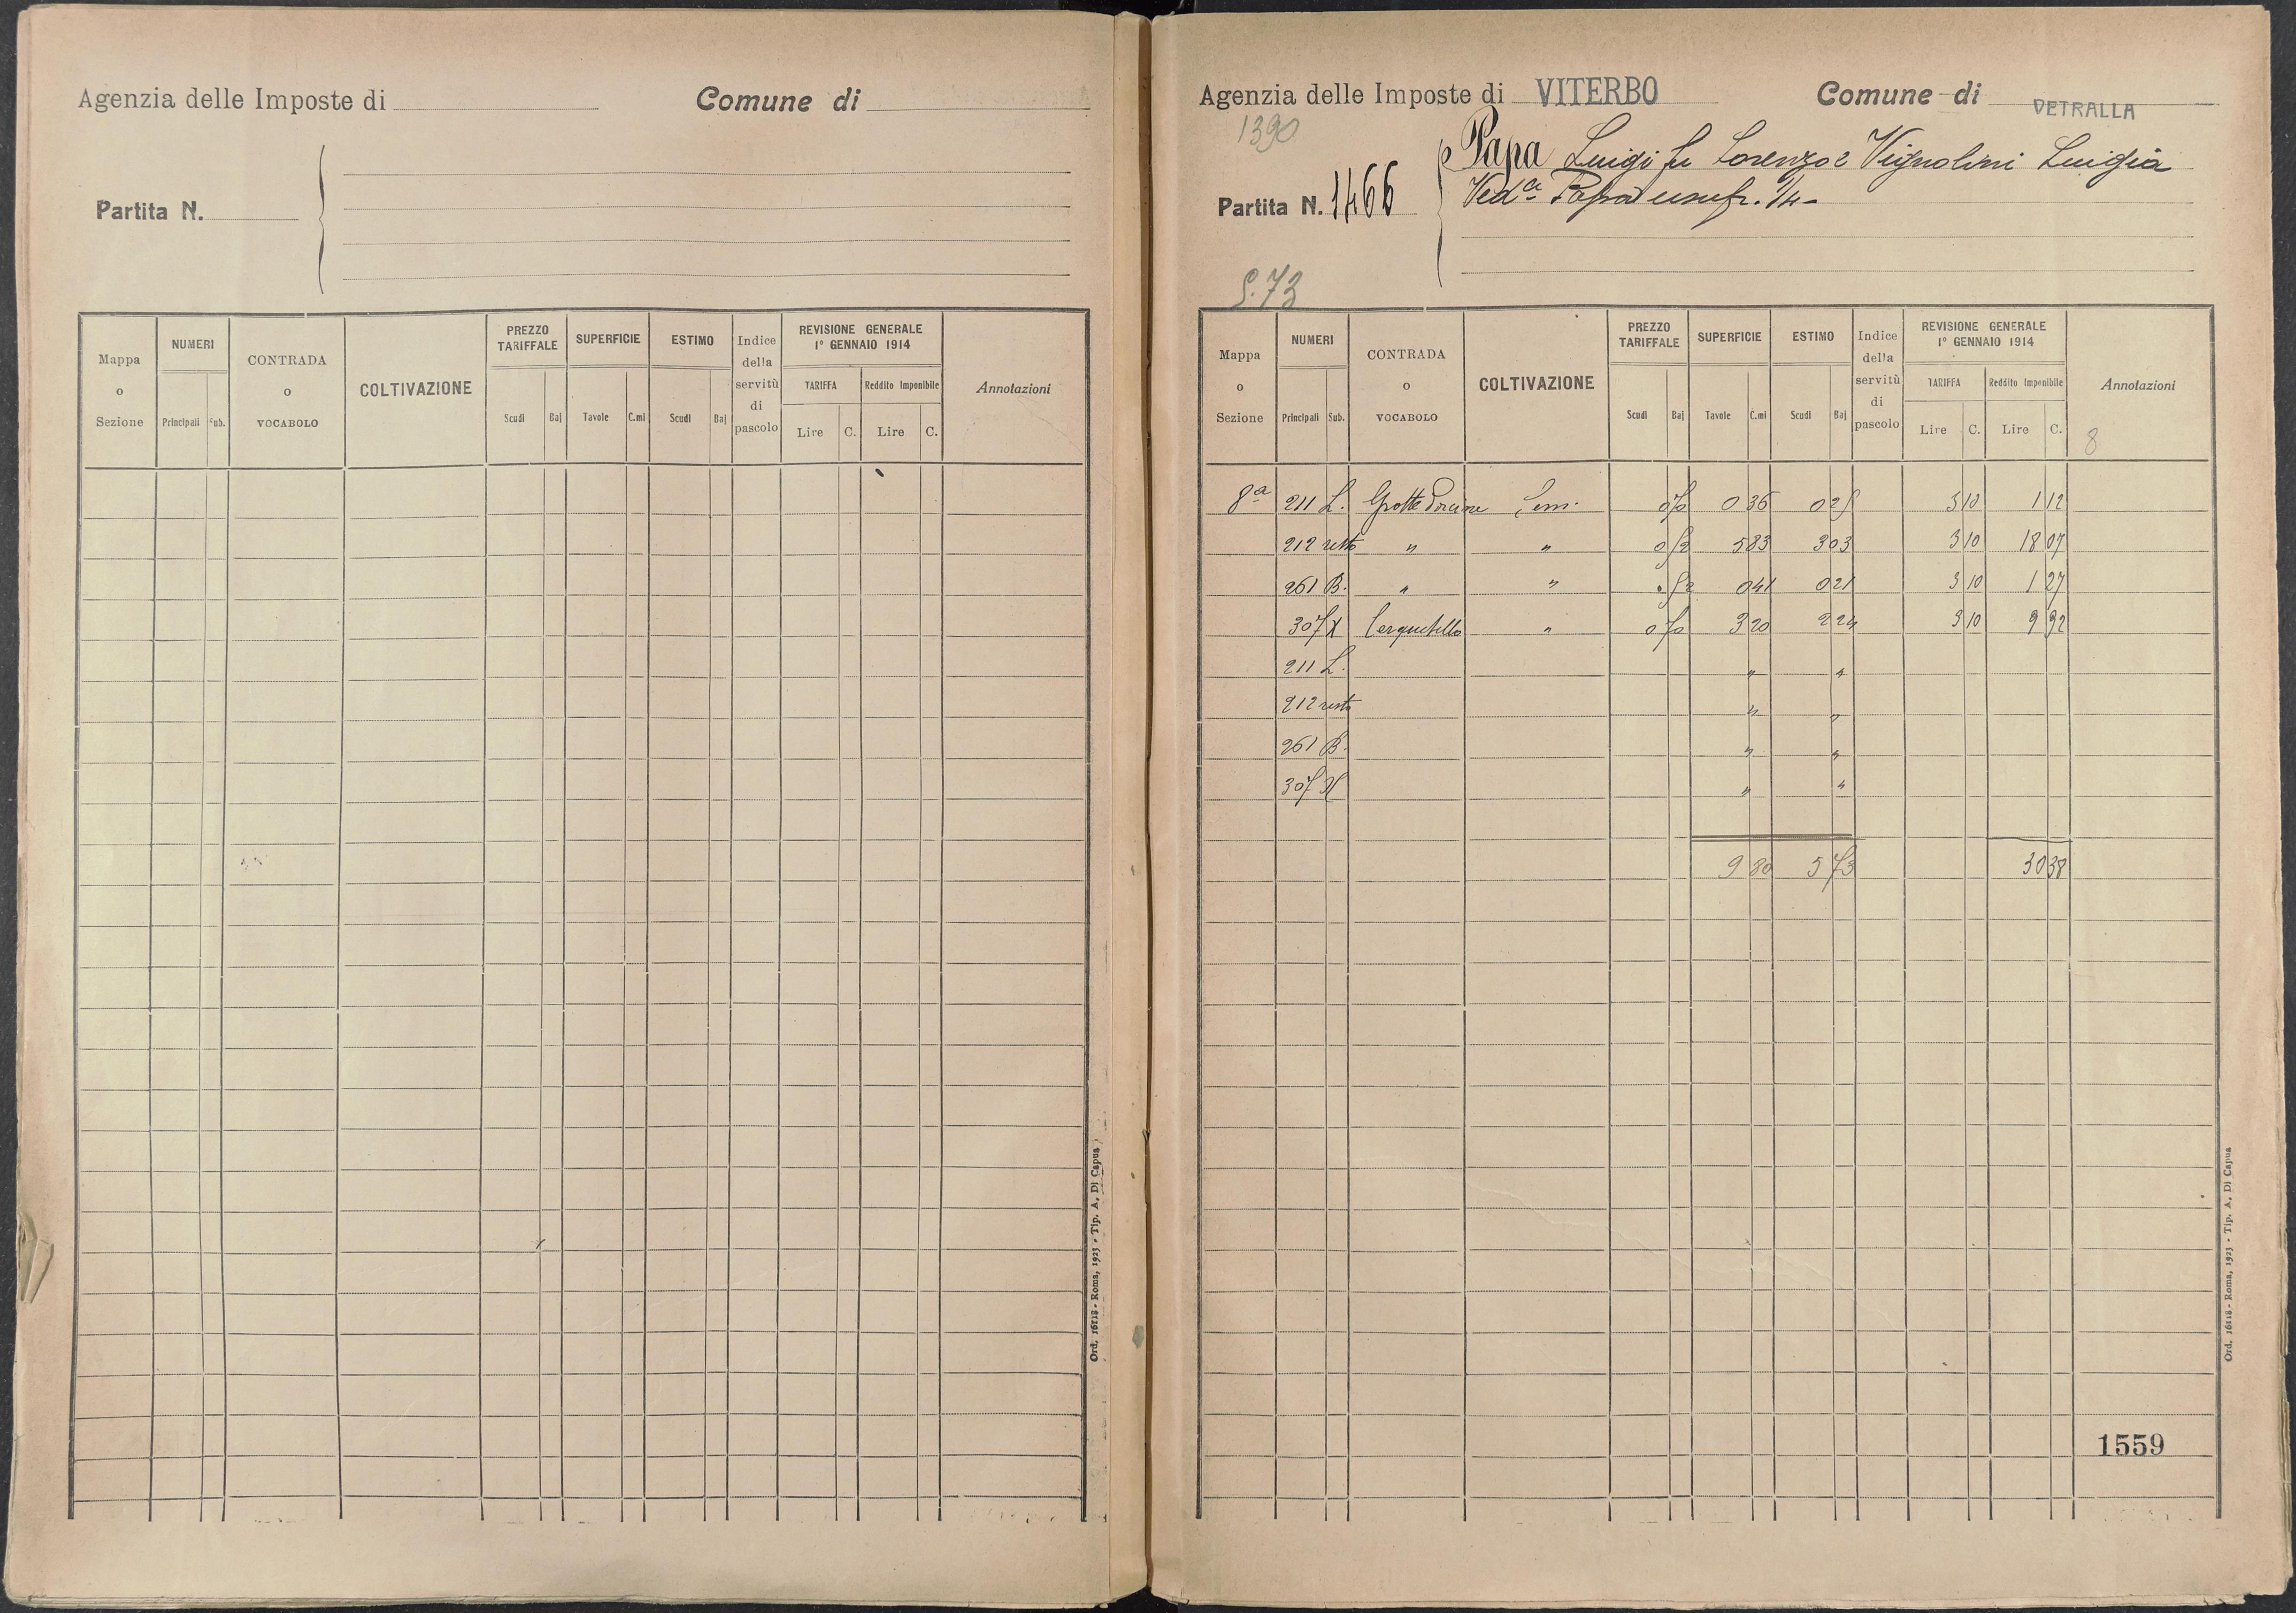 Agenzia delle Imposte di
Comune di
Partita N.
Mappa o Sezione
NUMERI
Principali
Sub.
CONTRADA o VOCABOLO
COLTIVAZIONE
PREZZO TARIFFALE
Scudi
Baj
SUPERFICIE
Tavole
C.mi
ESTIMO
Scudi
Baj
Indice della servitù di pascolo
REVISIONE GENERALE
1° GENNAIO 1914
TARIFFA
Reddito Imponibile
Lire C. Lire C.
Annotazioni
Ord. 16118 - Roma, 1923 - Tip. A. Di Capua
Agenzia delle Imposte di VITERBO
Comune di VETRALLA
1390
Partita N. 1466
Papa Luigi fu Lorenzo e Vignolini Luigia
Ved.a Papa usufr. 1/4
5.73
Mappa o Sezione
NUMERI
Principali
Sub.
CONTRADA o VOCABOLO
COLTIVAZIONE
PREZZO TARIFFALE
Scudi
Baj
SUPERFICIE
Tavole
C.mi
ESTIMO
Scudi
Baj
Indice della servitù di pascolo
REVISIONE GENERALE
1° GENNAIO 1914
TARIFFA
Reddito Imponibile
Lire C. Lire C.
Annotazioni
8
8a 211 L. Grotte Porcine Sem. 0 70 0 36 0 25 3 10 1 12
212 resto " " 0 52 5 83 3 03 3 10 18 07
261 B. " " 0 52 0 41 0 21 3 10 1 27
307 X Cerquetello " 0 70 3 20 2 24 3 10 9 92
211 L. " "
212 resto " "
261 B. " "
307 X " "
9 80 5 73 30 38
1559
Ord. 16118 - Roma, 1923 - Tip. A. Di Capua